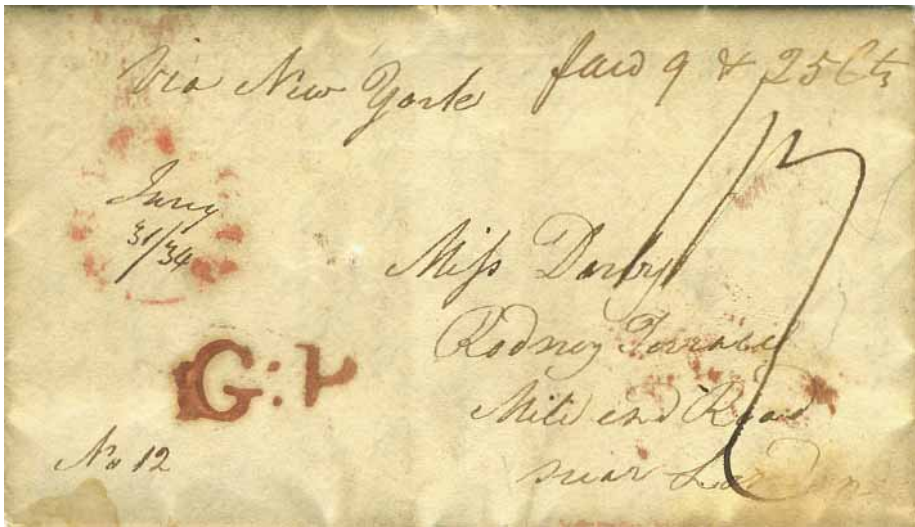 Via New York Paid 9 & 25 Cts
Jany
31/34
Miss Darby
Rodney Terrace
Mile end Road
near London
G:P
No 12